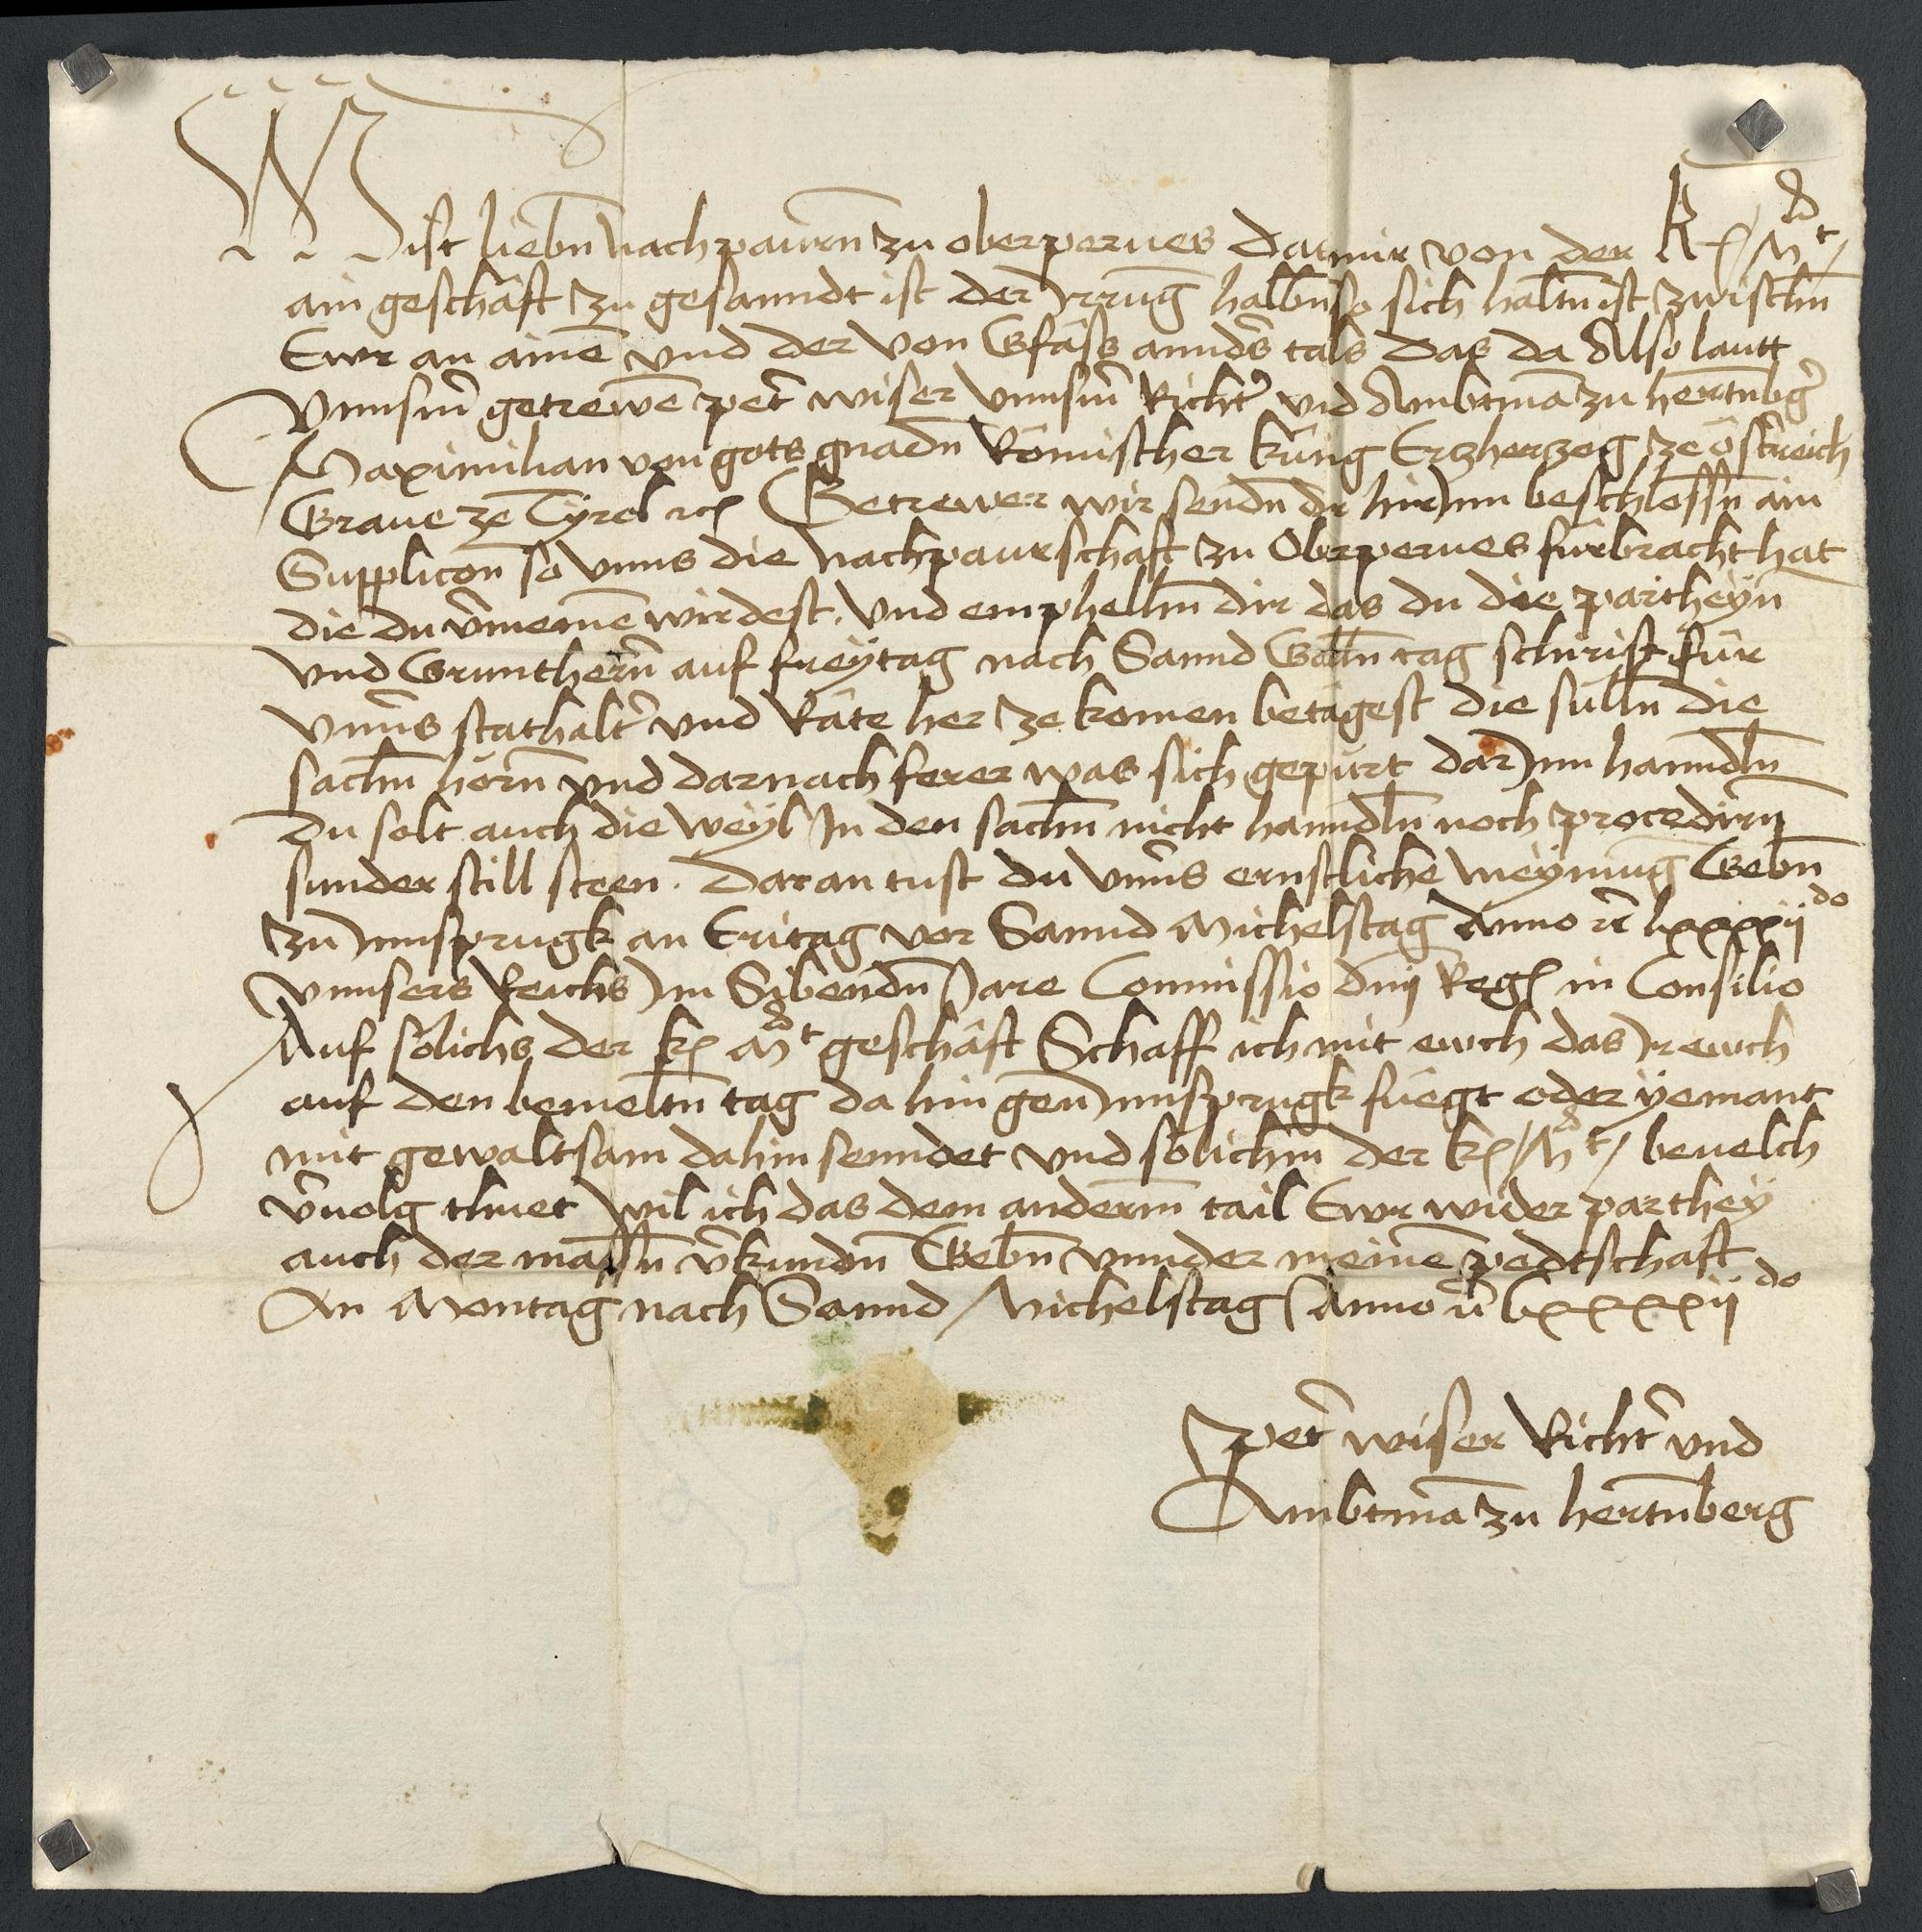 Wist liebn nachpaurn zu oberperues Dat mir von der K. Mt
ain geschäft zu gesanndt ist der Irrung halbn so sich haltn ist zwischn
Ewr an aine und der von Gfäss annds tails Das da Also lautt
Unnsm getrewe pet wiser Unnsm Richt und Ambtma zu hertnbg
Maximilian von gots gnadn Römischer küng Erzherzog ze östreich
Graue ze Tyrol rc Getrewer wir sendn dir hirInn beschlossn ain
Supplicon so Unns die Nachpaurschaft zu Obrperues fürbracht hat
die du vmemen wirdest. Und emphelhn dir das du die partheyn
und Grunthern auf freytag nach Sannd Galln tag schirist für
unns stathalt und Räte her ze komen betagest die sülln die
sachn hörn und darnach ferer was sich gepürt darInn hanndln
du solt auch die weyl In den sachn nicht hanndln noch procedirn
sunder still steen. Daran tust du unns ernstliche meynung Gebn
zu Innsprugk an Eritag vor Sannd Michelstag Anno rc lxxxxij do
unnsers Reichs Im Sibendn Jare Commissio dnj Regs in Consilio
Auf sölichs der k. Mt geschäft Schaff ich mit ewch das Ir ewch
auf den bemeltn tag da hin gen Innsprugk füegt oder yemant
mit gewaltsam dahin senndet und sölichm der k. Mt beuelch
vnolg thuet wil ich das dem anderm tail Ewr wider parthey
auch der massn vkundn Gebn unnder meine pedtschaft
An Montag nach Sannd Michelstag Anno rc lxxxxij do
pet wiser Richt und
Ambtma zu hertnberg